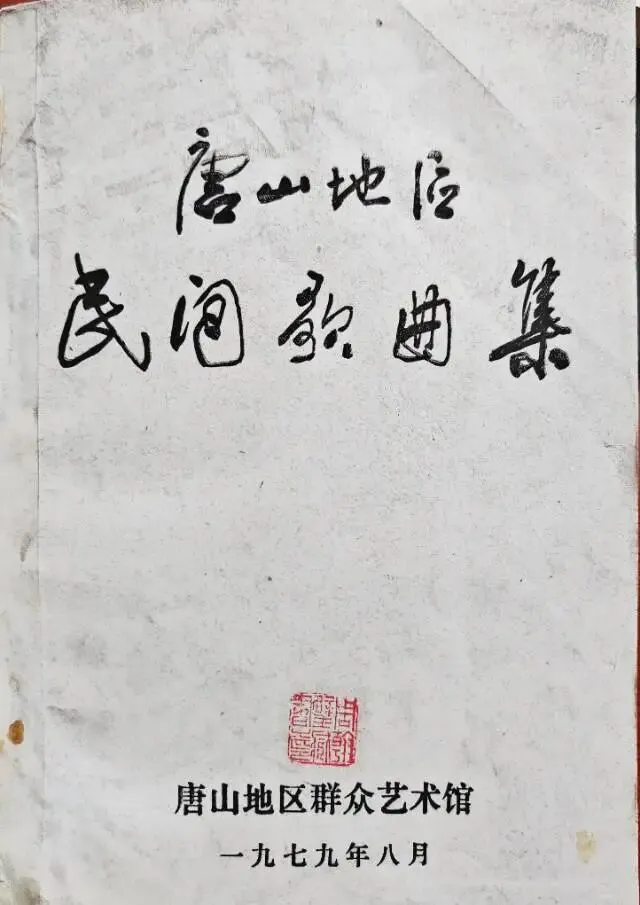 唐山地区
民间歌曲集
唐山地区群众艺术馆
一九七九年八月